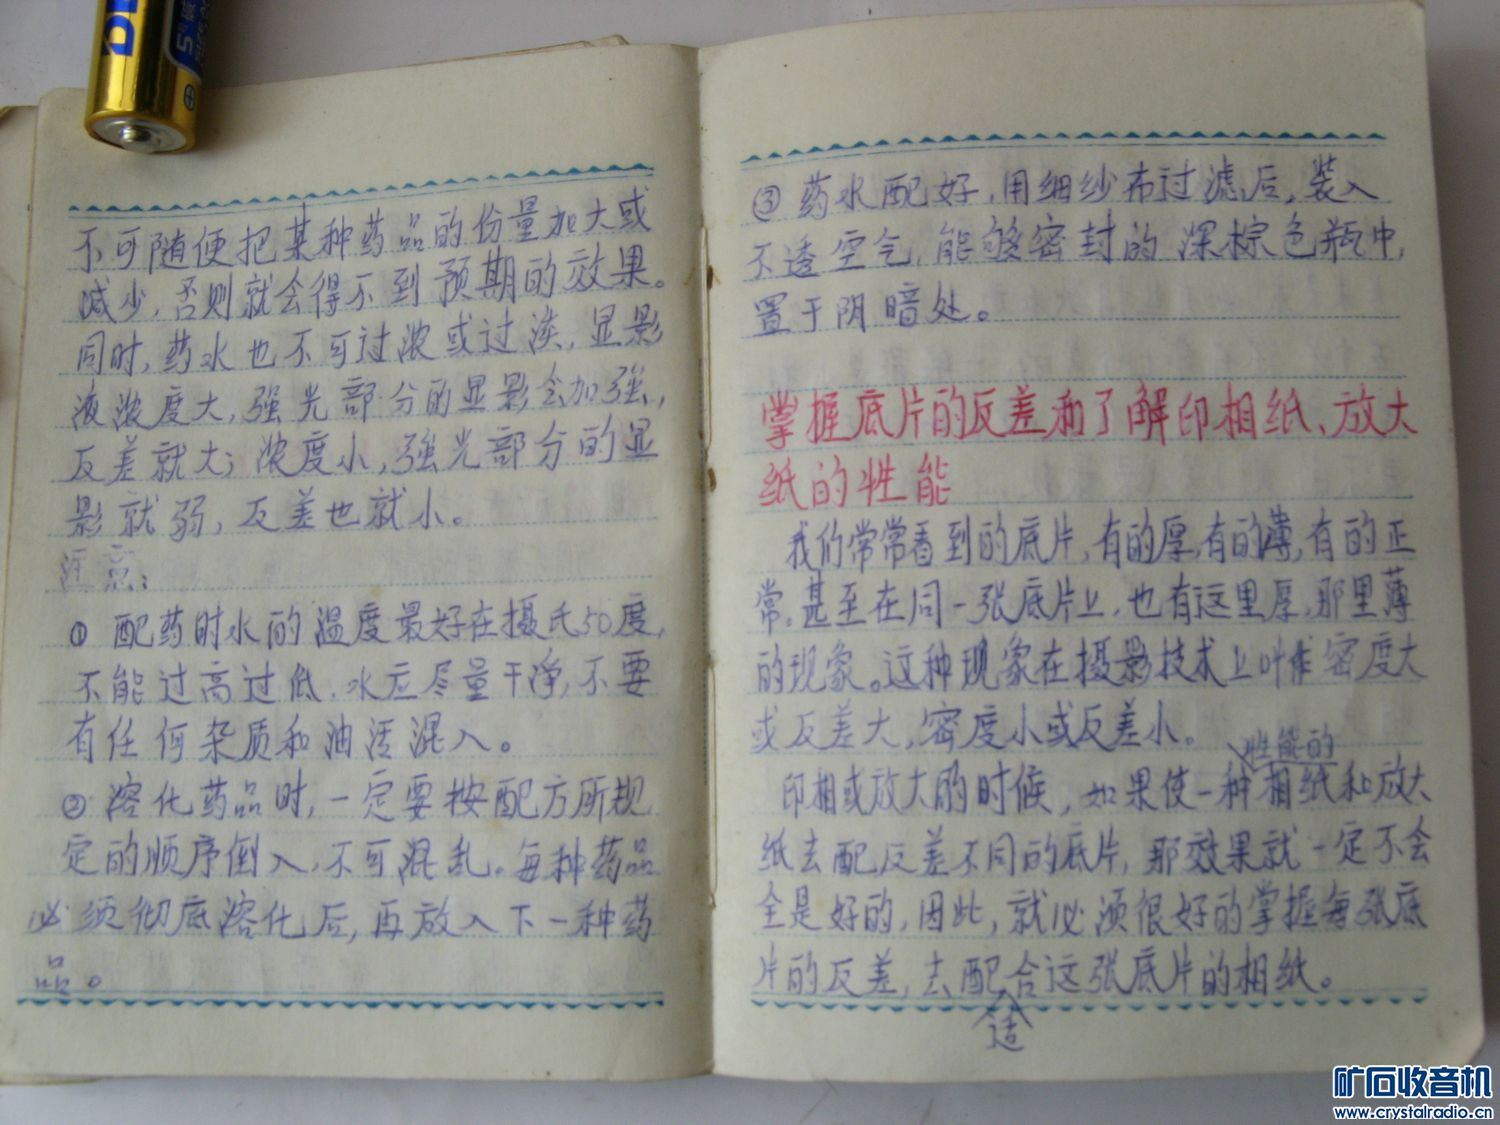 5 碱
不可随便把某种药品的份量加大或
减少,否则就会得不到预期的效果。
同时,药水也不可过浓或过淡,显影
液浓度大,强光部分的显影会加强,
反差就大;浓度小,强光部分的显
影就弱,反差也就小。
注意:
① 配药时水的温度最好在摄氏50度,
不能过高过低.水应尽量干净,不要
有任何杂质和油活混入。
② 溶化药品时,一定要按配方所规
定的顺序倒入,不可混乱。每种药品
必须彻底溶化后,再放入下一种药
品。
③ 药水配好,用细纱布过滤后,装入
不透空气,能够密封的深棕色瓶中,
置于阴暗处。
掌握底片的反差和了解印相纸、放大
纸的性能
我们常常看到的底片,有的厚,有的薄,有的正
常。甚至在同一张底片上,也有这里厚,那里薄
的现象。这种现象在摄影技术上叫作密度大
或反差大,密度小或反差小。
性能的
印相或放大的时候,如果使一种相纸和放大
纸去配反差不同的底片,那效果就一定不会
全是好的,因此,就必须很好的掌握每张底
片的反差,去配合这张底片的相纸。
适
矿石收音机
www.crystalradio.cn